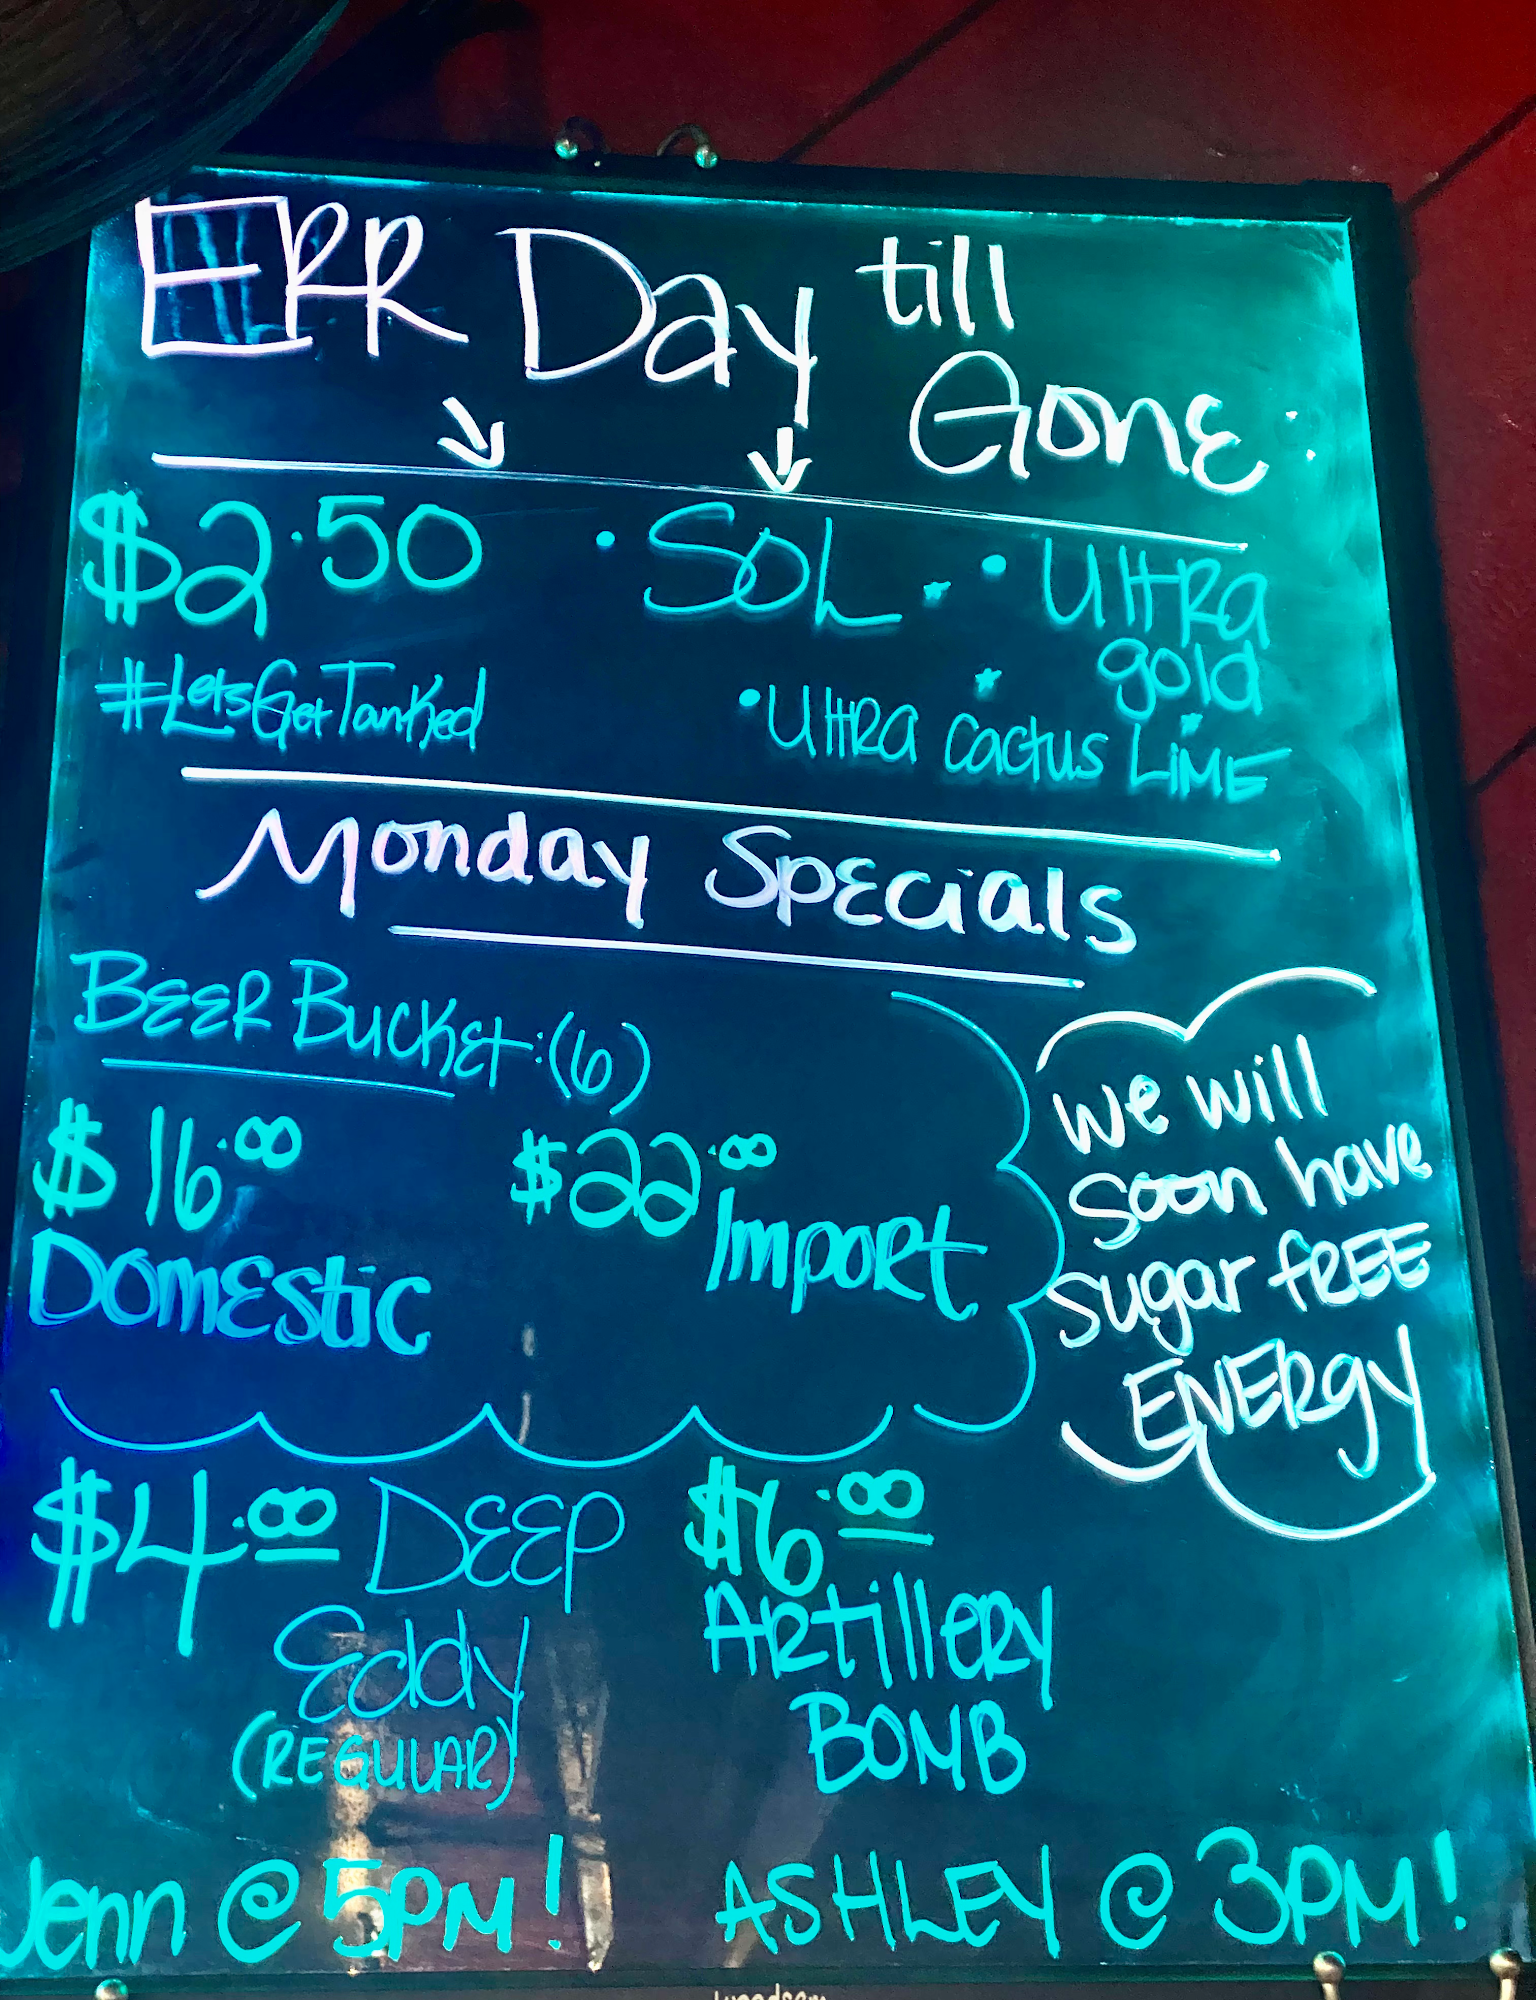 ERR Day till
Gone:
$2.50 • SOL • Ultra
gold
#LetsGetTanked • Ultra Cactus LiME
Monday Specials
BEER BUCKET: (6)
$16.00 $22.00
Domestic Import
we will
soon have
sugar fREE
ENERgy
$4.00 DEEP
Eddy
(REGULAR)
$6.00
ARtillERY
BOMB
Jenn @ 5PM! ASHLEY @ 3PM!